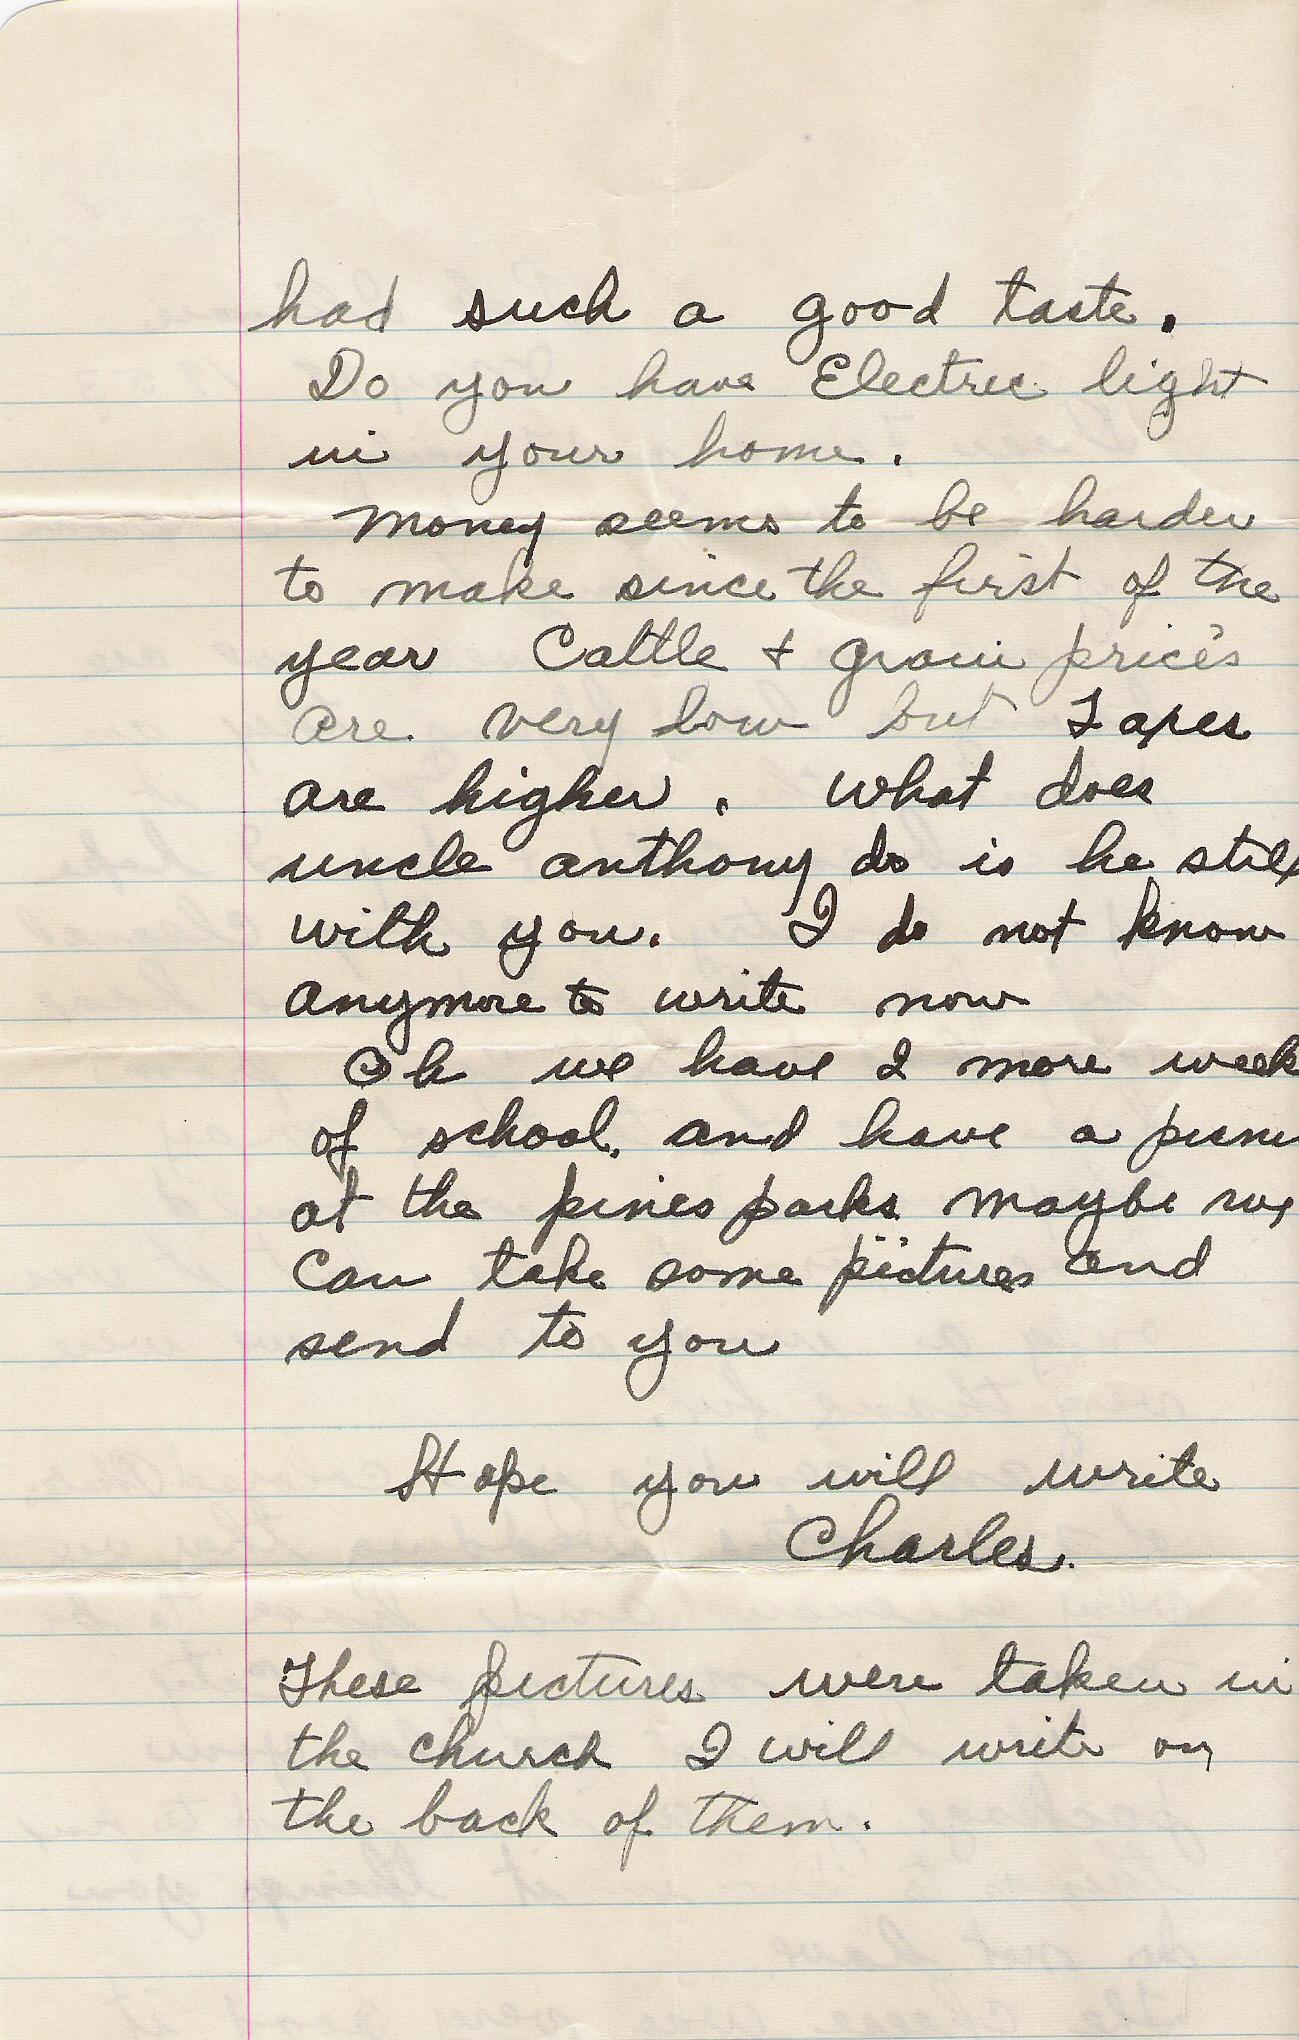 had such a good taste.
Do you have Electric light
in your home.
Money seems to be harder
to make since the first of the
year Cattle + grain prices
are very low but Taxes
are higher. What does
uncle anthony do is he still
with you. I do not know
anymore to write now
Oh we have 2 more week
of school, and have a picni
at the pines parks maybe we
can take some pictures and
send to you
Hope you will write
Charles.
These pictures were taken in
the church I will write on
the back of them.